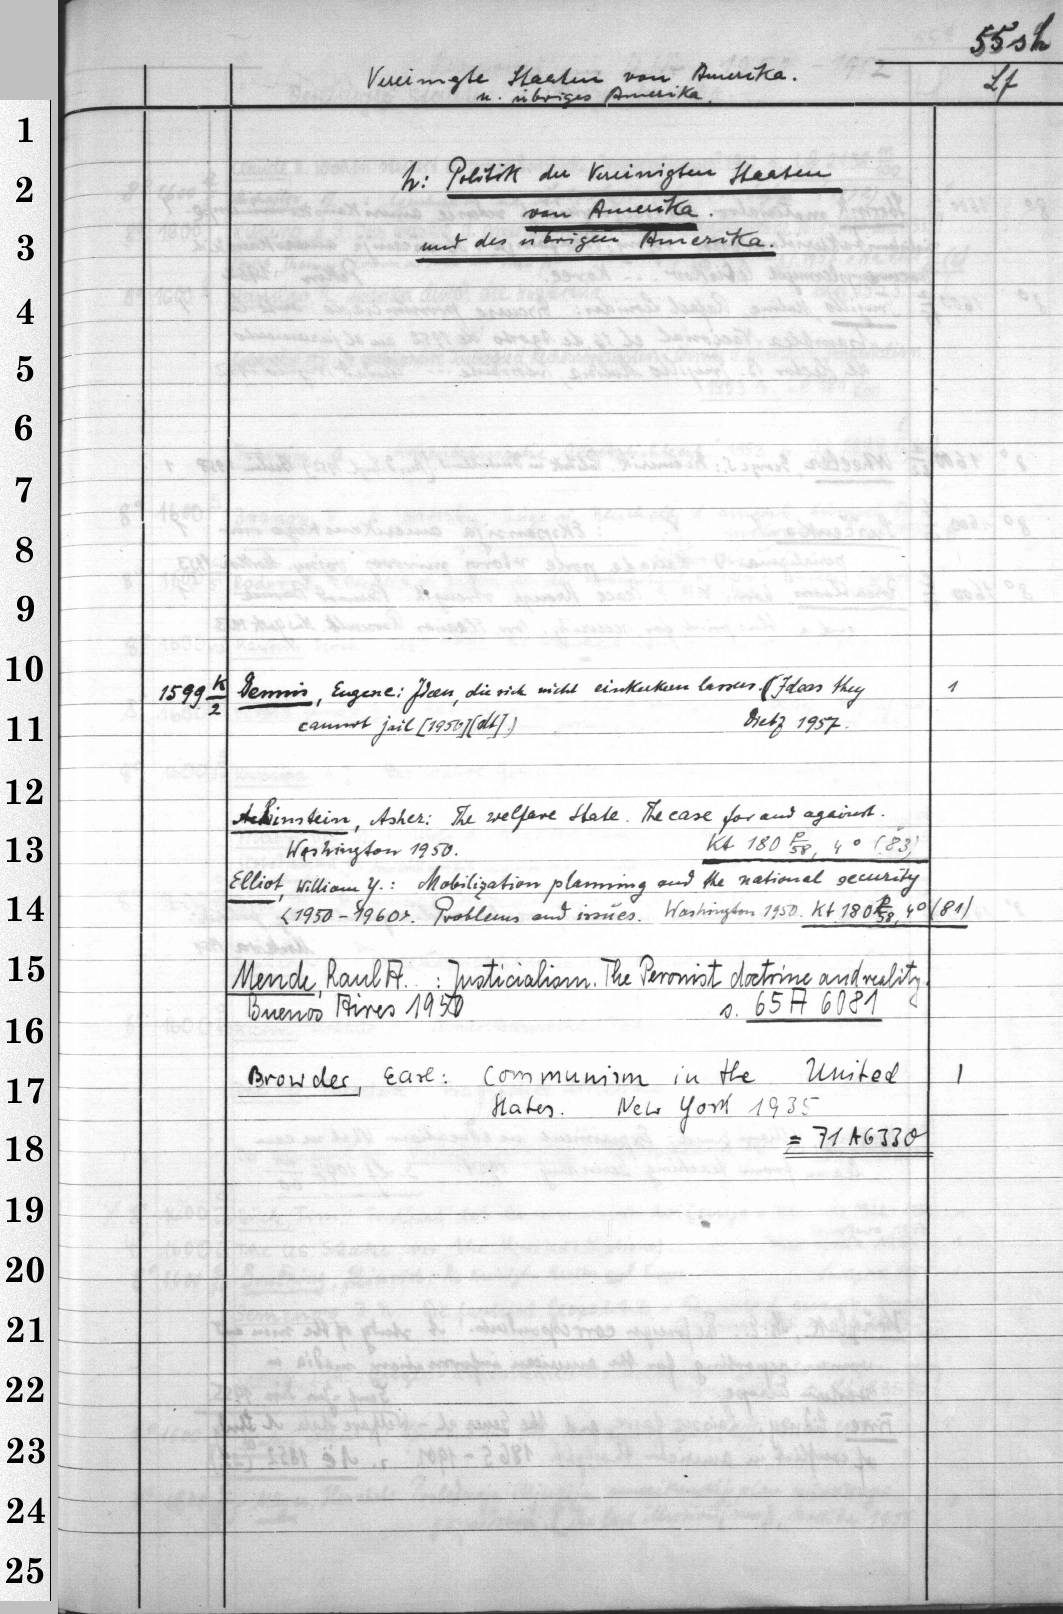 55sh
Lf
Vereinigte Staaten von Amerika.
u. übriges Amerika.
h: Politik der Vereinigten Staaten
von Amerika.
und des übrigen Amerika.
1599 K/2 Dennis, Eugene: Ideen, die sich nicht einkerkern lassen. (Ideas they 1
cannot jail [1950] [dt].) Dietz 1957.
Achinstein, Asher: The welfare State. The case for and against.
Washington 1950. Kt 180 P/58, 4° (83)
Elliot, William Y.: Mobilization planning and the national security
<1950-1960>. Problems and issues. Washington 1950. Kt 180 P/58, 4° (81)
Mende, Raul A. : Justicialism. The Peronist doctrine and reality.
Buenos Aires 1950 s. 65 A 6081
Browder, Earl: Communism in the United 1
States. New York 1935
= 71 A 6330
1
2
3
4
5
6
7
8
9
10
11
12
13
14
15
16
17
18
19
20
21
22
23
24
25